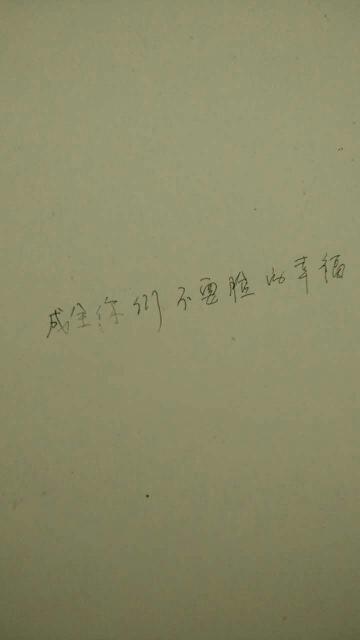 成全你们不要脸的幸福